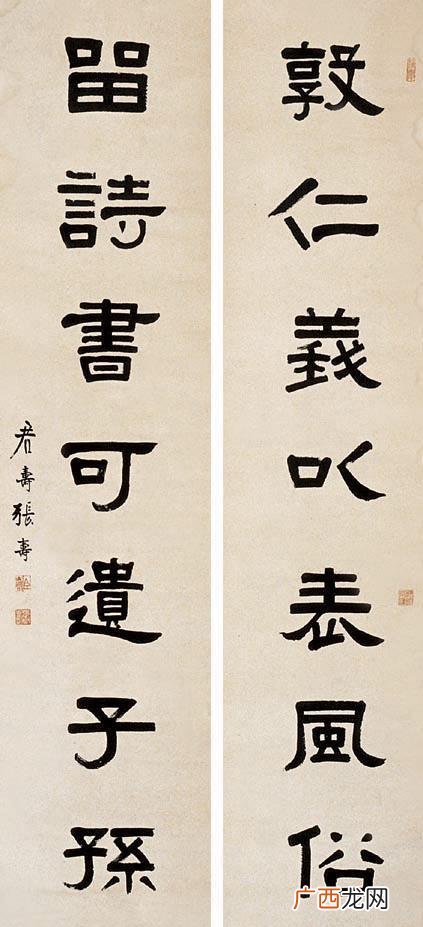 敦仁義㕥表風俗
留詩書可遺子孫
君壽張壽
广西龙网